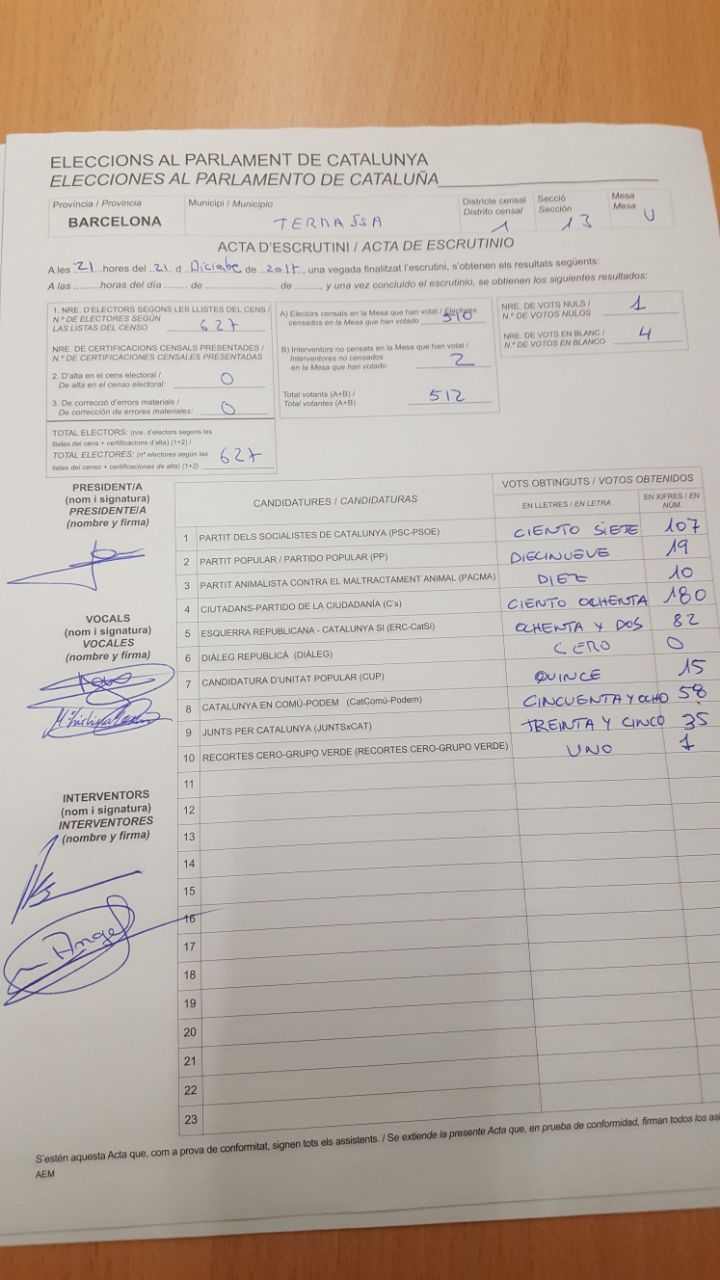 ELECCIONS AL PARLAMENT DE CATALUNYA
ELECCIONES AL PARLAMENTO DE CATALUÑA
Província / Provincia
BARCELONA
Municipi / Municipio
TERRASSA
Districte censal
Distrito censal
1
Secció
Sección
13
Mesa
Mesa
U
ACTA D'ESCRUTINI / ACTA DE ESCRUTINIO
A les 21 hores del 21 d Diciebe de 2017, una vegada finalitzat l'escrutini, s'obtenen els resultats següents:
A las ......... horas del día ....... de ........................ de ........., y una vez concluido el escrutinio, se obtienen los siguientes resultados:
1. NRE. D'ELECTORS SEGONS LES LLISTES DEL CENS /
N.º DE ELECTORES SEGÚN
LAS LISTAS DEL CENSO 627
NRE. DE CERTIFICACIONS CENSALS PRESENTADES /
N.º DE CERTIFICACIONES CENSALES PRESENTADAS
2. D'alta en el cens electoral /
De alta en el censo electoral: 0
3. De correcció d'errors materials /
De corrección de errores materiales: 0
TOTAL ELECTORS: (nre. d'electors segons les
llistes del cens + certificacions d'alta) (1+2) /
TOTAL ELECTORES: (nº electores según las
listas del censo + certificaciones de alta) (1+2) 627
A) Electors censats en la Mesa que han votat / Electores
censados en la Mesa que han votado 510
B) Interventors no censats en la Mesa que han votat /
Interventores no censados
en la Mesa que han votado 2
Total votants (A+B) /
Total votantes (A+B) 512
NRE. DE VOTS NULS /
N.º DE VOTOS NULOS 1
NRE. DE VOTS EN BLANC /
N.º DE VOTOS EN BLANCO 4
PRESIDENT/A
(nom i signatura)
PRESIDENTE/A
(nombre y firma)
VOCALS
(nom i signatura)
VOCALES
(nombre y firma)
INTERVENTORS
(nom i signatura)
INTERVENTORES
(nombre y firma)
Angel
CANDIDATURES / CANDIDATURAS
VOTS OBTINGUTS / VOTOS OBTENIDOS
EN LLETRES / EN LETRA
EN XIFRES / EN NÚM.
1 PARTIT DELS SOCIALISTES DE CATALUNYA (PSC-PSOE) CIENTO SIETE 107
2 PARTIT POPULAR / PARTIDO POPULAR (PP) DIECINUEVE 19
3 PARTIT ANIMALISTA CONTRA EL MALTRACTAMENT ANIMAL (PACMA) DIEZ 10
4 CIUTADANS-PARTIDO DE LA CIUDADANÍA (C's) CIENTO OCHENTA 180
5 ESQUERRA REPUBLICANA - CATALUNYA SI (ERC-CatSí) OCHENTA Y DOS 82
6 DIÀLEG REPUBLICÀ (DIÀLEG) CERO 0
7 CANDIDATURA D'UNITAT POPULAR (CUP) QUINCE 15
8 CATALUNYA EN COMÚ-PODEM (CatComú-Podem) CINCUENTA Y OCHO 58
9 JUNTS PER CATALUNYA (JUNTSxCAT) TREINTA Y CINCO 35
10 RECORTES CERO-GRUPO VERDE (RECORTES CERO-GRUPO VERDE) UNO 1
11
12
13
14
15
16
17
18
19
20
21
22
23
S'estén aquesta Acta que, com a prova de conformitat, signen tots els assistents. / Se extiende la presente Acta que, en prueba de conformidad, firman todos los
AEM